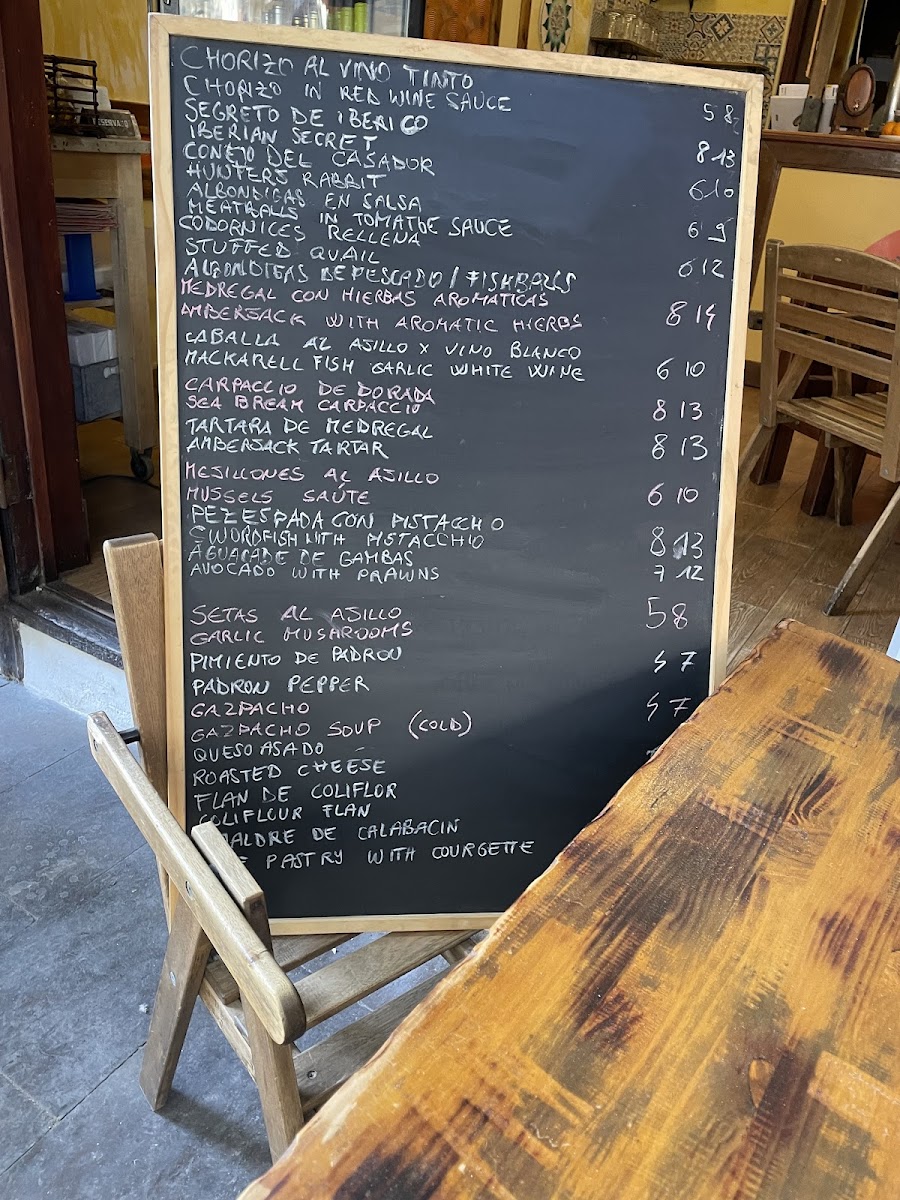 RESERVADO
CHORIZO AL VINO TINTO
CHORIZO IN RED WINE SAUCE 5 8
SEGRETO DE IBERICO
IBERIAN SECRET 8 13
CONEJO DEL CASADOR
HUNTERS RABBIT 6 10
ALBONDIGAS EN SALSA
MEATBALLS IN TOMATOE SAUCE 6 9
CODORNICES RELLENA
STUFFED QUAIL 6 12
ALBONDIGAS DE PESCADO / FISHBALLS
MEDREGAL CON HIERBAS AROMATICAS
AMBERJACK WITH AROMATIC HIERBS 8 14
CABALLA AL AJILLO X VINO BLANCO
MACKARELL FISH GARLIC WHITE WINE 6 10
CARPACCIO DE DORADA
SEA BREAM CARPACCIO 8 13
TARTARA DE MEDREGAL
AMBERJACK TARTAR 8 13
MEJILLONES AL AJILLO
MUSSELS SAÚTE 6 10
PEZ ESPADA CON PISTACCHIO
SWORDFISH WITH PISTACCHIO 8 13
AGUACADE DE GAMBAS
AVOCADO WITH PRAWNS 7 12
SETAS AL AJILLO 5 8
GARLIC MUSHROOMS
PIMIENTO DE PADRON 5 7
PADRON PEPPER
GAZPACHO 5 7
GAZPACHO SOUP (COLD)
QUESO ASADO
ROASTED CHEESE
FLAN DE COLIFLOR
COLIFLOUR FLAN
DE CALABACIN
PASTRY WITH COURGETTE